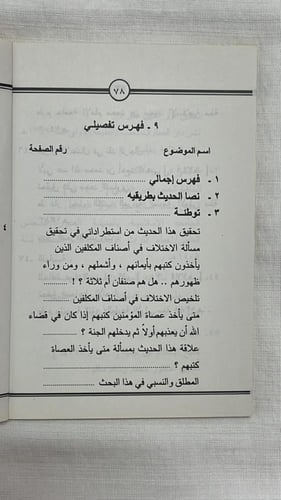 ٧٨
٩ ـ فهرس تفصيلي
اسم الموضوع رقم الصفحة
١ ـ فهرس إجمالي ..............................
٢ ـ نصا الحديث بطريقيه ..............................
٣ ـ توطئة ..............................
تحقيق هذا الحديث من استطراداتي في تحقيق
مسألة الاختلاف في أصناف المكلفين الذين
يأخذون كتبهم بأيمانهم ، وأشملهم ، ومن وراء
ظهورهم .. هل هم صنفان أم ثلاثة ؟ ! ..........
تلخيص الاختلاف في أصناف المكلفين
متى يأخذ عصاة المؤمنين كتبهم إذا كان في قضاء
الله أن يعذبهم أولاً ثم يدخلهم الجنة ؟ ..........
علاقة هذا الحديث بمسألة متى يأخذ العصاة
كتبهم ؟ ..............................
المطلق والنسبي في هذا البحث ....................
٤